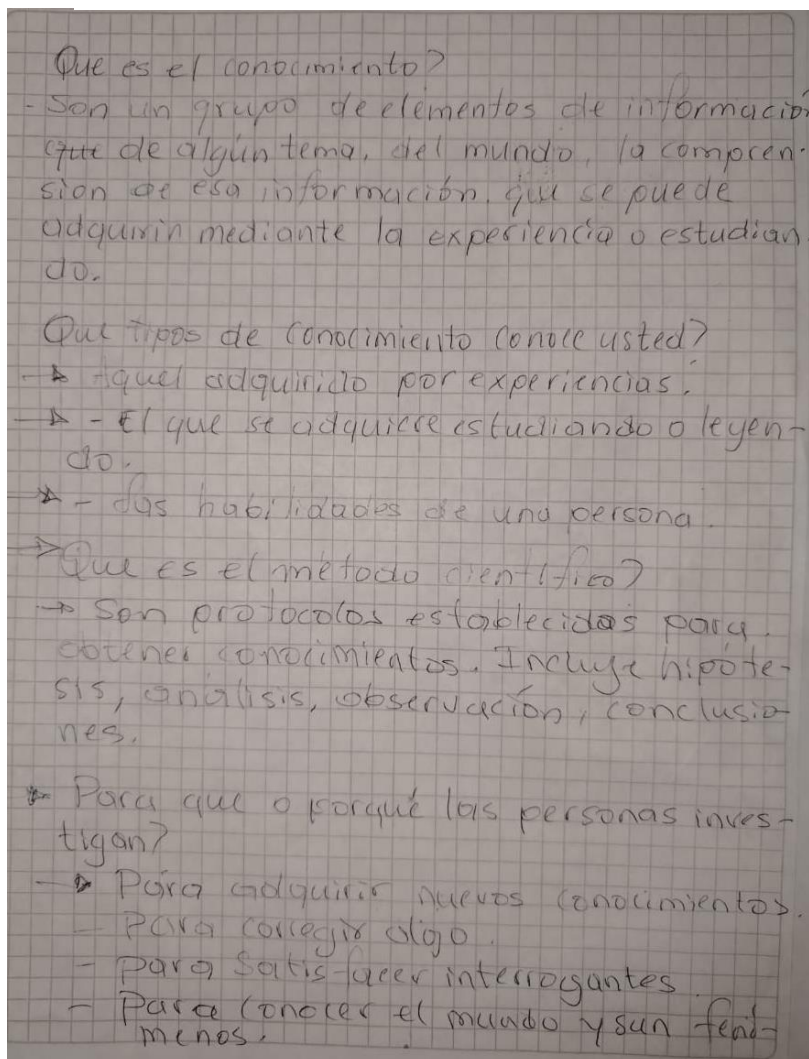 Que es el conocimiento?
- Son un grupo de elementos de información
de algún tema, del mundo, la compren-
sion de esa información, que se puede
adquirin mediante la experiencia o estudian
do.
Que tipos de conocimiento conoce usted?
→ Aquel adquirido por experiencias.
→ - El que se adquiere estudiando o leyen-
do.
→ - Las habilidades de una persona.
→ Que es el método científico?
→ Son protocolos establecidos para
obtener conocimientos. Incluye hipóte-
sis, análisis, observación, conclusio-
nes.
→ Para que o porqué las personas inves-
tigan?
→ Para adquirir nuevos conocimientos.
- Para corregir algo.
- Para satisfacer interrogantes
- Para conocer el mundo y sun fenó-
menos.